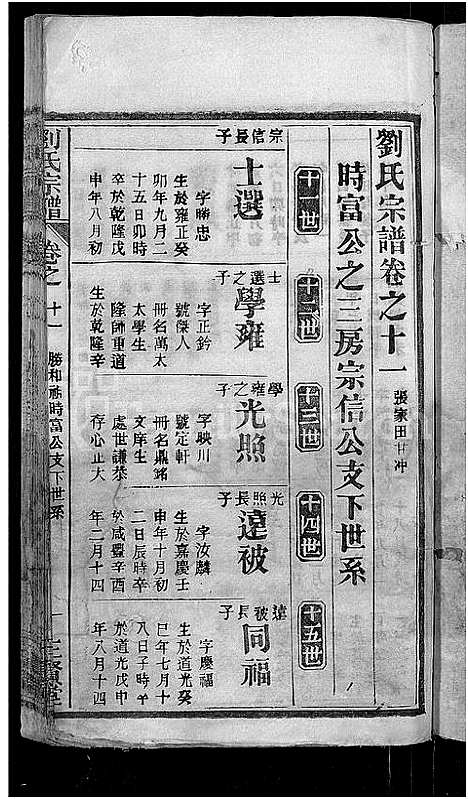 劉氏宗譜卷之十一
張家田廿冲
時富公之三房宗信公支下世系
十一世
十二世
十三世
十四世
十五世
宗信長子
士選
字聯忠
生於雍正癸
卯年九月二
十五日卯時
卒於乾隆戊
申年八月初
士選之子
學雍
字正鈐
號傑人
冊名萬太
太學生
隆師重道
生於乾隆辛
學雍之子
光照
字映川
號定軒
冊名鼎銘
文庠生
處世謙恭
存心正大
光照長子
遠被
字汝麟
生於嘉慶壬
申年十月初
二日辰時卒
於咸豐辛酉
年二月十四
遠被長子
同福
字慶福
生於道光癸
巳年七月十
八日子時卒
於道光戊申
年八月十四
劉氏宗譜
卷之十一
勝和祐時富公支下世系
三賢堂